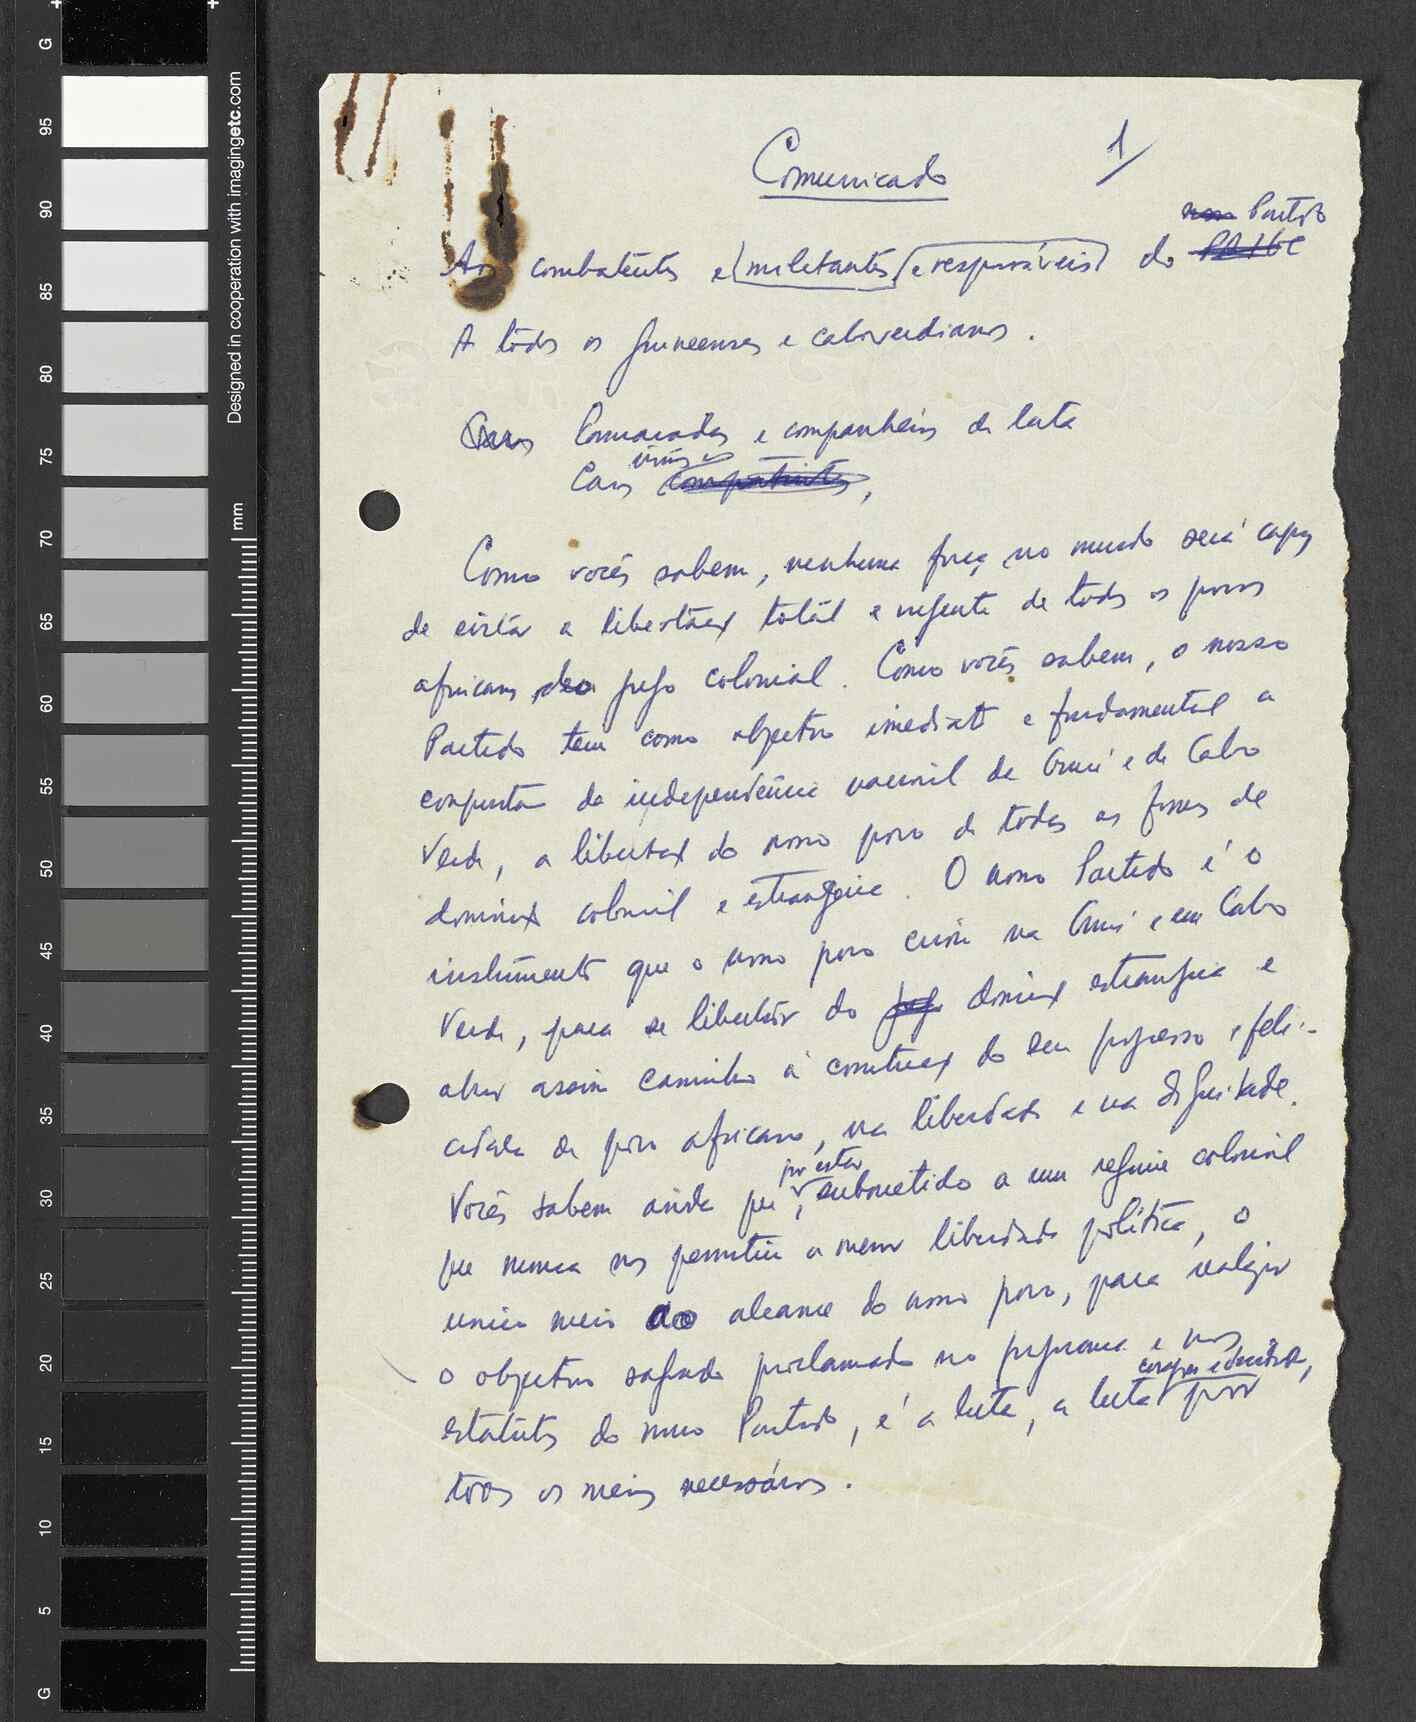 Designed in cooperation with imagingetc.com
mm
G
95
90
85
80
75
70
65
60
55
50
45
40
35
30
25
20
15
10
5
G
Comunicado
1/
nosso Partido
Aos combatentes e militantes e responsáveis do PAIGC
A todos os guineenses e caboverdianos.
Caros Camaradas e companheiros de luta
irmãos
Caros compatriotas,
Como vocês sabem, nenhuma força no mundo será capaz
de evitar a libertação total e urgente de todos os povos
africanos do jugo colonial. Como vocês sabem, o nosso
Partido tem como objetivo imediato e fundamental a
conquista da independência nacional da Guiné e de Cabo
Verde, a libertação do nosso povo de todas as formas de
domínio colonial e estrangeiro. O nosso Partido é o
instrumento que o nosso povo criou na Guiné e em Cabo
Verde, para se libertar do jugo domínio estrangeiro e
abrir assim caminho à construção do seu progresso e feli-
cidade de povo africano, na liberdade e na dignidade.
por estar
Vocês sabem ainda que, submetido a um regime colonial
que nunca nos permitiu a menor liberdade política, o
único meio ao alcance do nosso povo, para realizar
o objetivo sagrado proclamado no programa e nos
corajosa e decidida,
estatutos do nosso Partido, é a luta, a luta por
todos os meios necessários.